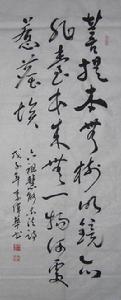 菩提本無樹明鏡亦
非臺本來無一物何處
惹塵埃
六祖慧能示法詩
戊子年